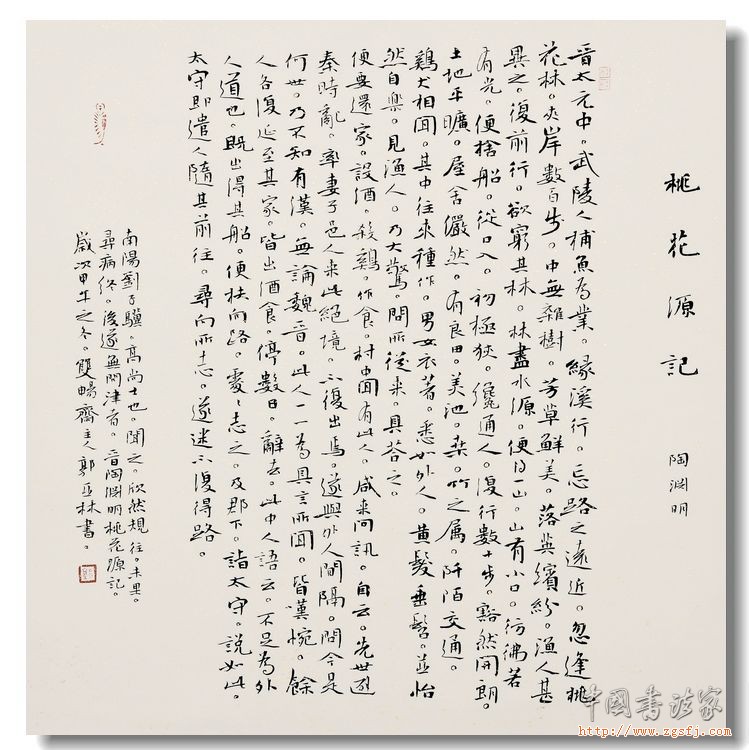 桃花源記 陶淵明
晉太元中。武陵人捕魚為業。緣溪行。忘路之遠近。忽逢桃
花林。夾岸數百步。中無雜樹。芳草鮮美。落英繽紛。漁人甚
異之。復前行。欲窮其林。林盡水源。便得一山。山有小口。彷彿若
有光。便捨船。從口入。初極狹。纔通人。復行數十步。豁然開朗。
土地平曠。屋舍儼然。有良田。美池。桑。竹之屬。阡陌交通。
鷄犬相聞。其中往來種作。男女衣著。悉如外人。黃髮垂髫。並怡
然自樂。見漁人。乃大驚。問所從來。具答之。
便要還家。設酒。殺鷄。作食。村中聞有此人。咸來問訊。自云。先世避
秦時亂。率妻子邑人來此絕境。不復出焉。遂與外人間隔。問今是
何世。乃不知有漢。無論魏晉。此人一一為具言所聞。皆嘆惋。餘
人各復延至其家。皆出酒食。停數日。辭去。此中人語云。不足為外
人道也。既出得其船。便扶向路。處處志之。及郡下。詣太守。說如此。
太守即遣人隨其前往。尋向所志。遂迷不復得路。
南陽劉子驥。高尚士也。聞之。欣然規往。未果。
尋病終。後遂無問津者。晉陶淵明桃花源記。
歲次甲午之冬。雙暢齋主人郭亞林書。
中国书法家
http://www.zgsfj.com